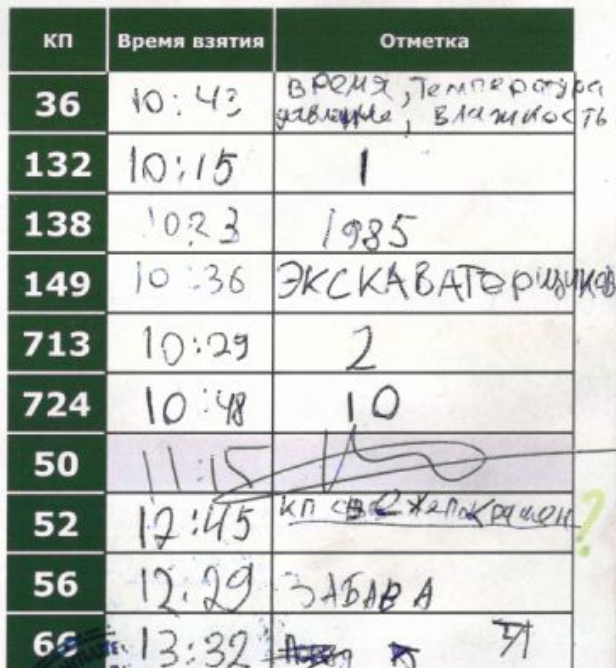 КП Время взятия Отметка
36 10:43 время, температура
давление, влажность
132 10:15 1
138 10:23 1985
149 10:36 ЭКСКАВАТОРЩИКОВ
713 10:29 2
724 10:48 10
50 11:15
52 12:45 КП свежепокрашен ?
56 12.29 ЗАБАВА
66 13:32